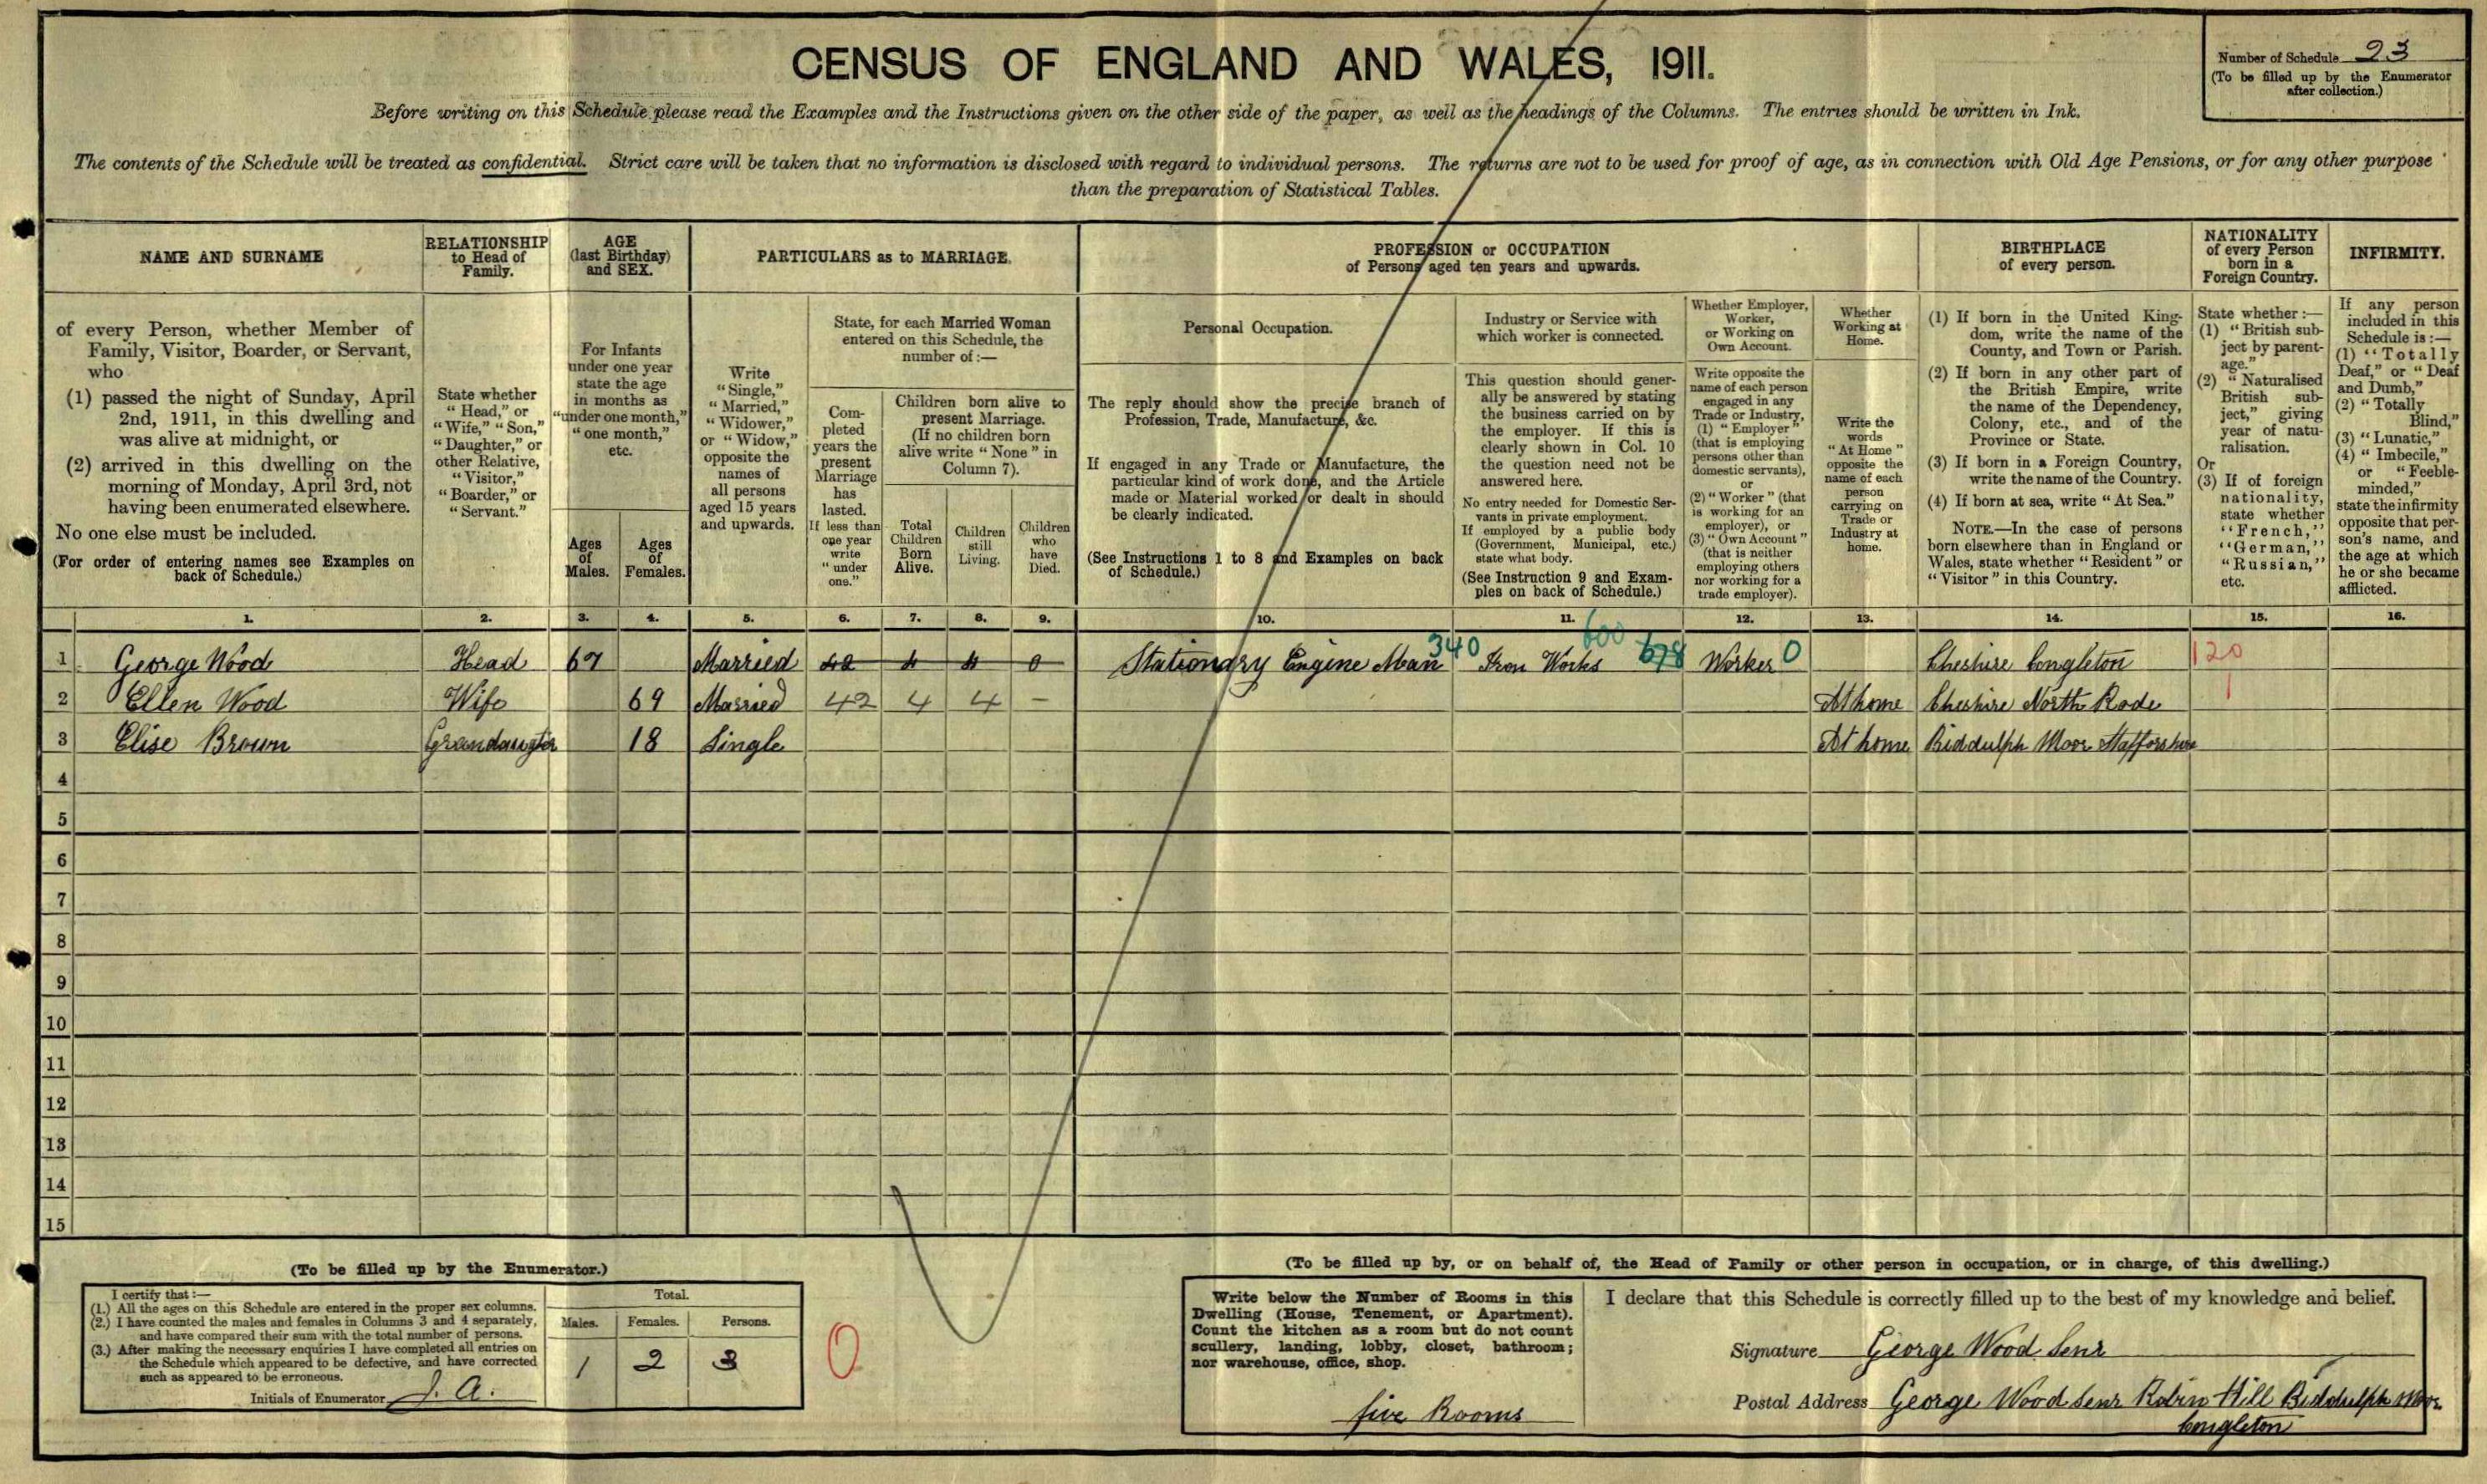 CENSUS OF ENGLAND AND WALES, 1911.
Number of Schedule 23
(To be filled up by the Enumerator
after collection.)
Before writing on this Schedule please read the Examples and the Instructions given on the other side of the paper, as well as the headings of the Columns. The entries should be written in Ink.
The contents of the Schedule will be treated as confidential. Strict care will be taken that no information is disclosed with regard to individual persons. The returns are not to be used for proof of age, as in connection with Old Age Pensions, or for any other purpose
than the preparation of Statistical Tables.
NAME AND SURNAME
RELATIONSHIP
to Head of
Family.
AGE
(last Birthday)
and SEX.
PARTICULARS as to MARRIAGE.
PROFESSION or OCCUPATION
of Persons aged ten years and upwards.
BIRTHPLACE
of every person.
NATIONALITY
of every Person
born in a
Foreign Country.
INFIRMITY.
of every Person, whether Member of
Family, Visitor, Boarder, or Servant,
who
(1) passed the night of Sunday, April
2nd, 1911, in this dwelling and
was alive at midnight, or
(2) arrived in this dwelling on the
morning of Monday, April 3rd, not
having been enumerated elsewhere.
No one else must be included.
(For order of entering names see Examples on
back of Schedule.)
State whether
"Head," or
"Wife," "Son,"
"Daughter," or
other Relative,
"Visitor,"
"Boarder," or
"Servant."
For Infants
under one year
state the age
in months as
"under one month,"
"one month,"
etc.
Ages
of
Males.
Ages
of
Females.
Write
"Single,"
"Married,"
"Widower,"
or "Widow,"
opposite the
names of
all persons
aged 15 years
and upwards.
State, for each Married Woman
entered on this Schedule, the
number of:—
Com-
pleted
years the
present
Marriage
has
lasted.
If less than
one year
write
"under
one."
Children born alive to
present Marriage.
(If no children born
alive write "None" in
Column 7).
Total
Children
Born
Alive.
Children
still
Living.
Children
who
have
Died.
Personal Occupation.
The reply should show the precise branch of
Profession, Trade, Manufacture, &c.
If engaged in any Trade or Manufacture, the
particular kind of work done, and the Article
made or Material worked or dealt in should
be clearly indicated.
(See Instructions 1 to 8 and Examples on back
of Schedule.)
Industry or Service with
which worker is connected.
This question should gener-
ally be answered by stating
the business carried on by
the employer. If this is
clearly shown in Col. 10
the question need not be
answered here.
No entry needed for Domestic Ser-
vants in private employment.
If employed by a public body
(Government, Municipal, etc.)
state what body.
(See Instruction 9 and Exam-
ples on back of Schedule.)
Whether Employer,
Worker,
or Working on
Own Account.
Write opposite the
name of each person
engaged in any
Trade or Industry,
(1) "Employer"
(that is employing
persons other than
domestic servants),
or
(2) "Worker" (that
is working for an
employer), or
(3) "Own Account"
(that is neither
employing others
nor working for a
trade employer).
Whether
Working at
Home.
Write the
words
"At Home"
opposite the
name of each
person
carrying on
Trade or
Industry at
home.
(1) If born in the United King-
dom, write the name of the
County, and Town or Parish.
(2) If born in any other part of
the British Empire, write
the name of the Dependency,
Colony, etc., and of the
Province or State.
(3) If born in a Foreign Country,
write the name of the Country.
(4) If born at sea, write "At Sea."
NOTE.—In the case of persons
born elsewhere than in England or
Wales, state whether "Resident" or
"Visitor" in this Country.
State whether:—
(1) "British sub-
ject by parent-
age."
(2) "Naturalised
British sub-
ject," giving
year of natu-
ralisation.
Or
(3) If of foreign
nationality,
state whether
"French,"
"German,"
"Russian,"
etc.
If any person
included in this
Schedule is:—
(1) "Totally
Deaf," or "Deaf
and Dumb,"
(2) "Totally
Blind,"
(3) "Lunatic,"
(4) "Imbecile,"
or "Feeble-
minded,"
state the infirmity
opposite that per-
son's name, and
the age at which
he or she became
afflicted.
1. 2. 3. 4. 5. 6. 7. 8. 9. 10. 11. 12. 13. 14. 15. 16.
600
1 George Wood Head 67 Married 42 4 4 0 Stationary Engine Man 340 Iron Works 678 Worker 0 Cheshire Congleton 120
2 Ellen Wood Wife 69 Married 42 4 4 – At home Cheshire North Rode 1
3 Elise Brown Grandaugter 18 Single At home Biddulph Moor Stafforshire
4
5
6
7
8
9
10
11
12
13
14
15
(To be filled up by the Enumerator.)
I certify that:—
(1.) All the ages on this Schedule are entered in the proper sex columns.
(2.) I have counted the males and females in Columns 3 and 4 separately,
and have compared their sum with the total number of persons.
(3.) After making the necessary enquiries I have completed all entries on
the Schedule which appeared to be defective, and have corrected
such as appeared to be erroneous.
Initials of Enumerator J. A.
Total.
Males. Females. Persons.
1 2 3
0
(To be filled up by, or on behalf of, the Head of Family or other person in occupation, or in charge, of this dwelling.)
Write below the Number of Rooms in this
Dwelling (House, Tenement, or Apartment).
Count the kitchen as a room but do not count
scullery, landing, lobby, closet, bathroom;
nor warehouse, office, shop.
five Rooms
I declare that this Schedule is correctly filled up to the best of my knowledge and belief.
Signature George Wood Senr
Postal Address George Wood Senr Robin Hill Biddulph Moor
Congleton